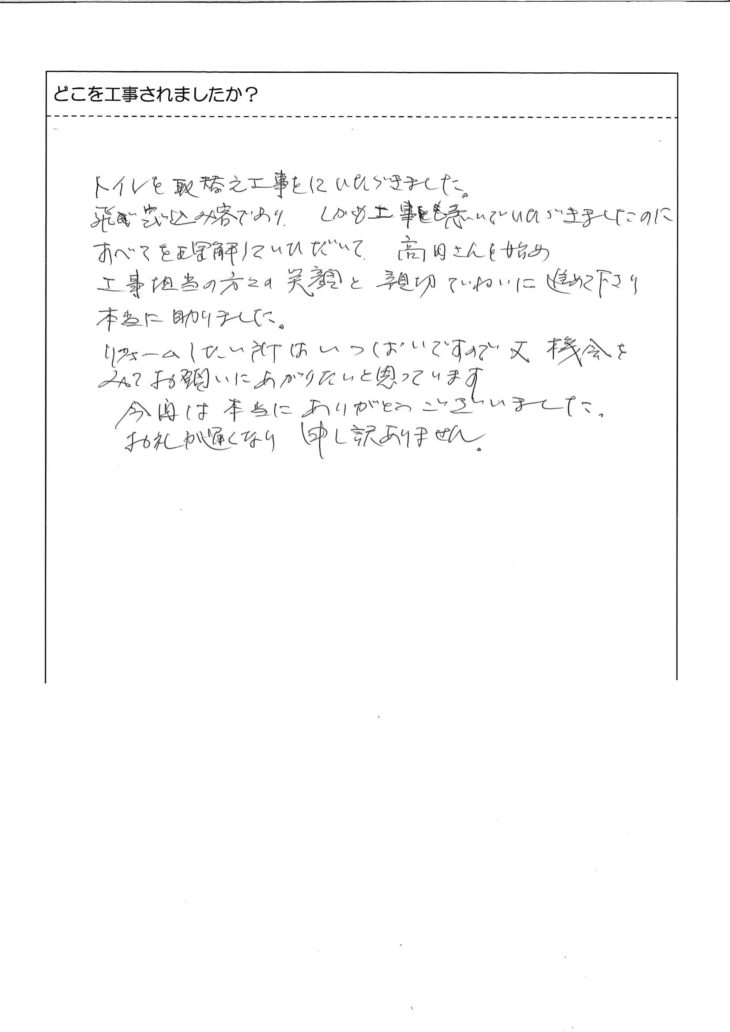 どこを工事されましたか？
トイレを取替え工事をしていただきました。
飛び込み客であり しかも工事も急いでいただきましたのに
すべてを理解していただいて 高田さんを始め
工事担当の方々の笑顔と親切ていねいに進めて下さり
本当に助りました。
リフォームしたい所はいっぱいですので又 機会を
みてお願いにあがりたいと思っています
今回は本当にありがとうございました。
お礼が遅くなり 申し訳ありません。